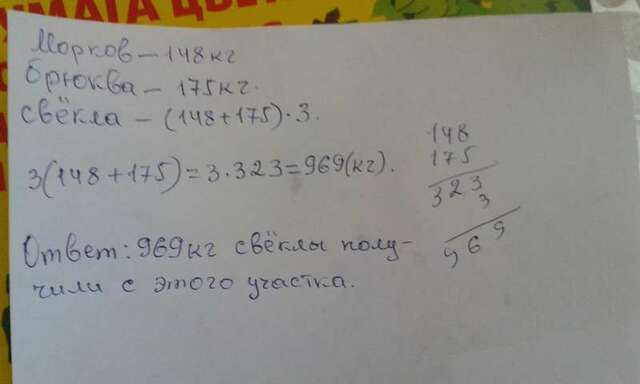 УМАГА ЦВЕ
Морков – 148кг
Брюква – 175кг.
Свёкла – (148+175)·3.
3(148+175)=3·323=969(кг).
148
175
323
3
969
Ответ: 969кг свёклы полу-
чили с этого участка.